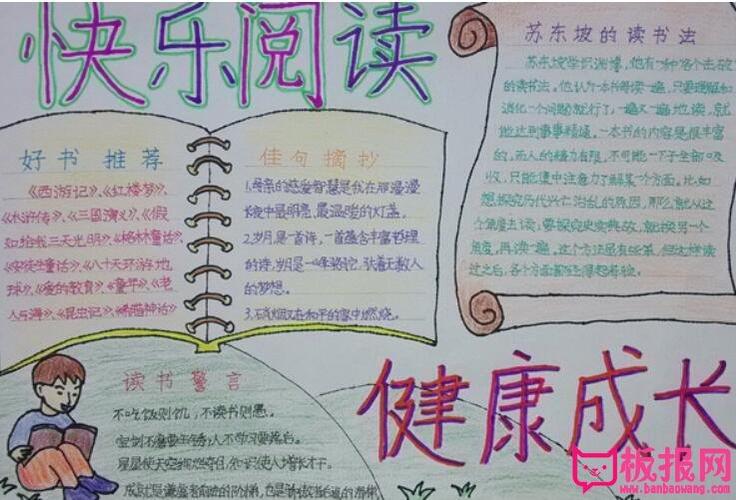 快乐阅读
好书推荐
《西游记》、《红楼梦》、
《水浒传》、《三国演义》、《假
如给我三天光明》、《格林童话》、
《安徒生童话》、《八十天环游地
球》、《爱的教育》、《童年》、《老
人与海》、《昆虫记》、《希腊神话》
佳句摘抄
1.母亲的慈爱智慧是我在那漫漫
长夜中最明亮、最温暖的灯盏。
2.岁月是一首诗,一首蕴含丰富哲理
的诗,岁月是一峰骆驼,驮着无数人
的梦想。
3.硝烟又在和平的家中燃烧。
苏东坡的读书法
苏东坡学识渊博,他有一种各个击破
的读书法。他认为一本书每读一遍,只要理解和
消化一个问题就行了,一遍又一遍地读,就
能达到事事精通。一本书的内容是很丰富
的,而人的精力有限,不可能一下子全部吸
收,只能集中注意力了解某一个方面。比如
想探究历代兴亡治乱的原因,那么就从这
个角度去读;要探究史实典故,就换另一个
角度,再读一遍。这个方法虽有些笨,但这样读
过之后,各个方面都经得起考验。
读书警言
不吃饭则饥,不读书则愚。
宝剑不磨要生锈;人不学习要落后。
星星使天空绚烂夺目;知识使人增长才干。
健康成长
板报网
www.banbaowang.com